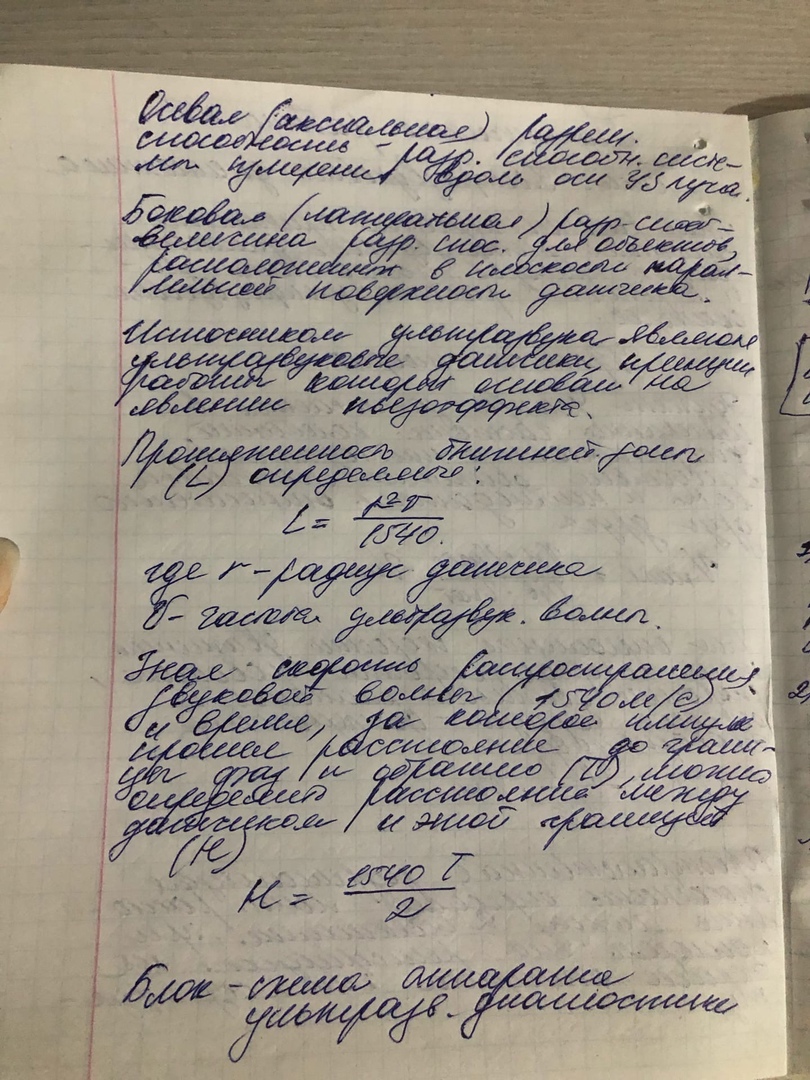 Осевая (аксиальная) разреш.
способность - разр. способн. систе-
мы измерения вдоль оси УЗ луча.
Боковая (латеральная) разр. спос-
величина разр. спос. для объектов,
расположенных в плоскости парал-
лельной поверхности датчика.
Источником ультразвука являются
ультразвуковые датчики, принцип
работы которых основан на
явлении пьезоэффекта.
Протяженность ближней зоны
(L) определяется:
L = r²σ / 1540.
где r - радиус датчика
σ - частота ультразвук. волны.
Зная скорость распространения
звуковой волны (1540 м/с)
и время, за которое импульс
прошел расстояние до грани-
цы фаз и обратно (T), можно
определить расстояние между
датчиком и этой границей
(H)
H = 1540 T / 2
Блок - схема аппарата
ультразв. диагностики